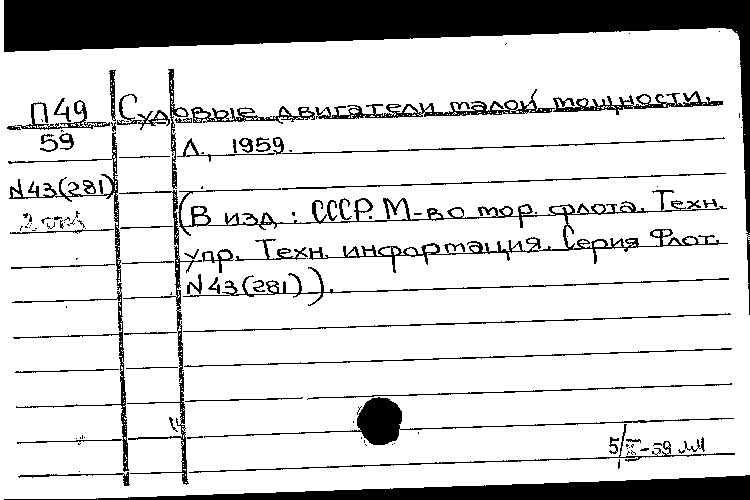 П49 Судовые двигатели малой мощности.
59 Л., 1959.
N43(281)
(В изд.: СССР. М-во мор. флота. Техн.
упр. Техн. информация. Серия Флот.
N43(281)).
5/X-59